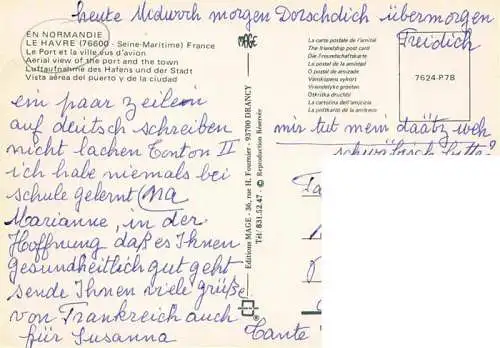 heute Midwoch morgen Dorschdich übermorgen
Freidich
EN NORMANDIE
LE HAVRE (76600 - Seine-Maritime) France
Le Port et la ville vus d'avion
Aerial view of the port and the town
Luftaufnahme des Hafens und der Stadt
Vista aérea del puerto y de la ciudad
ein paar zeilein
auf deutsch schreiben
nicht lachen Tonton II
ich habe niemals bei
schule gelernt (na
Marianne, in der
Hoffnung daß es Ihnen
gesundheitlich gut geht
sende Ihnen viele grüße
von Frankreich auch
für Susanna
MAGE
Editions MAGE - 36, rue H. Fournier - 93700 DRANCY
Tél: 831.52.47 - © Reproduction Réservée
La carte postale de l'amitié
The friendship post card
Die Freundschaftskarte
La postal de la amistad
O postal de amizade
Vänskapens vykort
Vriendelyke groeten
Otkritka druchbi
La cartolina dell'amicizia
La postkarto de la amikeco
7624-P7B
mir tut mein daätz weh
schwäbisch bitte?
Tante